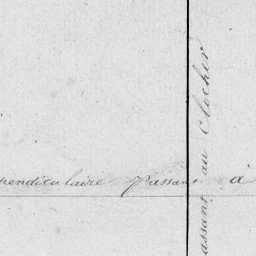 pendiculaire passant à
assant au Clocher